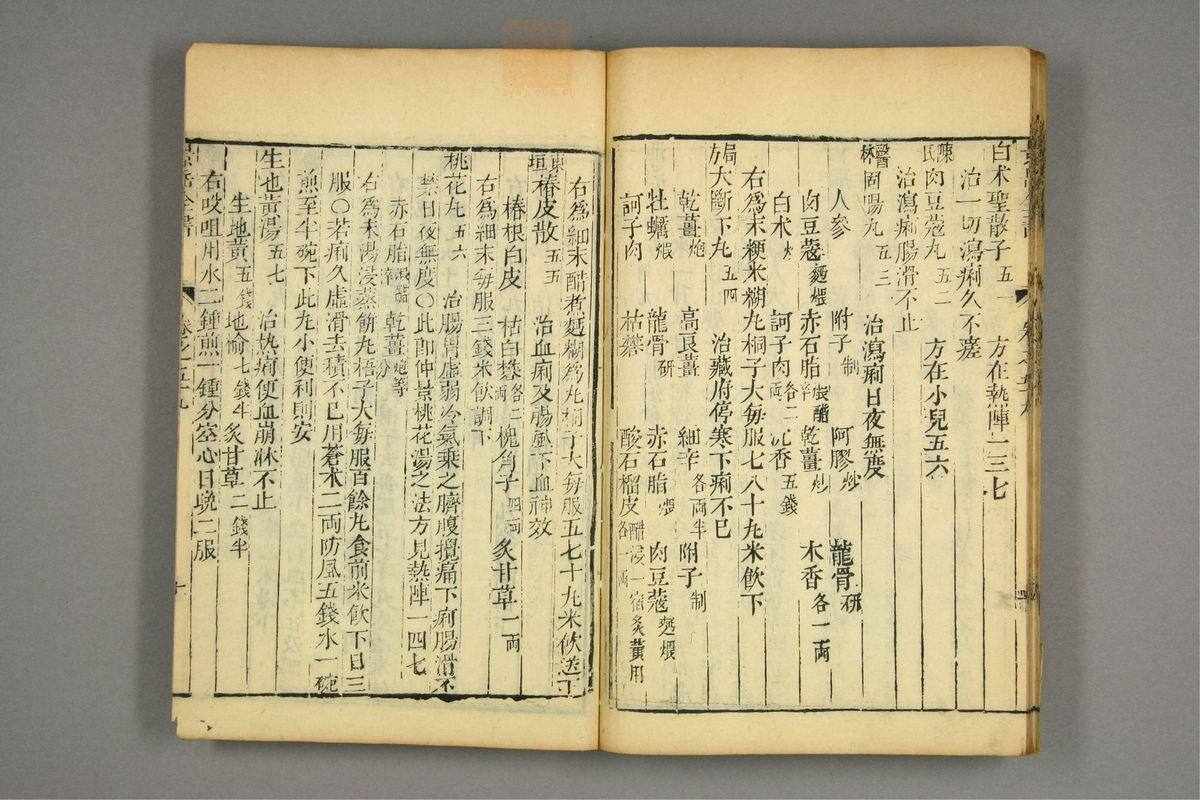 白术聖散子五一 方在熱陣一三七
治一切瀉痢久不瘥
陳氏肉豆蔻丸五二 方在小兒五六
治瀉痢腸滑不止
醫林固陽丸五三 治瀉痢日夜無度
人參 附子制 阿膠炒 龍骨研
肉豆蔻麵煨 赤石脂 乾薑炒 木香各一兩
白术炒 訶子肉各二 沉香五錢
右爲末粳米糊丸桐子大每服七八十丸米飲下
局方大斷下丸五四 治藏府停寒下痢不已
乾薑炮 高良薑 細辛各一兩半 附子制
牡蠣煆 龍骨研 赤石脂煆 肉豆蔻麵煨
訶子肉 枯礬 酸石榴皮醋浸一宿炙黃用各一兩
右爲細末醋煮麵糊爲丸桐子大每服五七十丸米飲送下
東垣椿皮散五五 治血痢及腸風下血神效
椿根白皮 枯白礬各二兩 槐角子四兩 炙甘草一兩
右爲細末每服三錢米飲調下
桃花丸五六 治腸胃虛弱冷氣乘之臍腹攪痛下痢腸滑不
禁日夜無度〇此卽仲景桃花湯之法方見熱陣一四七
赤石脂 乾薑炮等分
右爲末湯浸蒸餅丸梧子大每服百餘丸食前米飲下日三
服〇若痢久虛滑去積不已用蒼术二兩防風五錢水一碗
煎至半碗下此丸小便利則安
生地黃湯五七 治熱痢便血崩淋不止
生地黃五錢 地榆七錢半 炙甘草二錢半
右㕮咀用水二鍾煎一鍾分空心日晩二服
景岳全書 卷之五十九 十